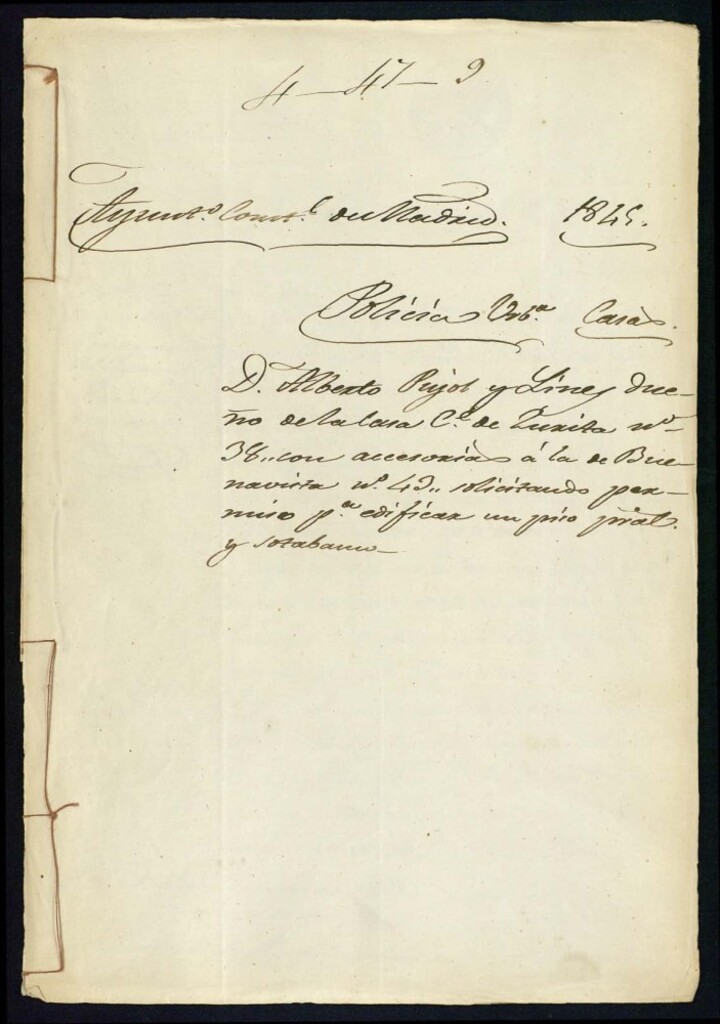 4 - 47 - 9
Ayunt.o Const.l de Madrid. 1845.
Policía Urb.a Casas.
D. Alberto Pujol y Lines due-
ño de la Casa C.e de Zurita n.o
38,, con accesorias á la de Bue-
navista n.o 43,, solicitando per-
miso p.a edificar un piso pral.
y sotabanco